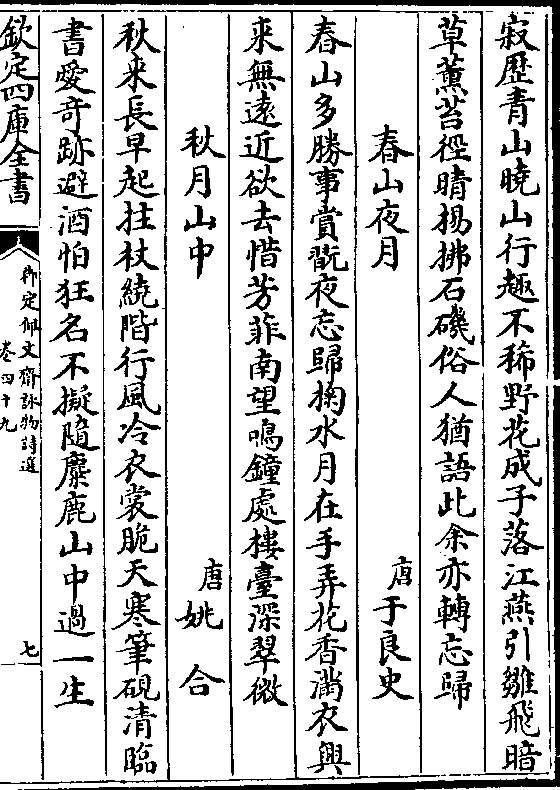 寂歴青山曉山行趣不稀野花成子落江燕引雛飛暗
草薰苔徑晴楊拂石磯俗人猶語此余亦轉忘歸
春山夜月 唐于良史
春山多勝事賞翫夜忘歸掬水月在手弄花香滿衣興
來無逺近欲去惜芳菲南望鳴鐘處樓臺深翠微
秋月山中 唐姚合
秋來長早起拄杖繞階行風冷衣裳脆天寒筆硯清臨
書愛奇跡避酒怕狂名不擬隨麋鹿山中過一生
欽定四庫全書
御定佩文齋詠物詩選
卷四十九
七